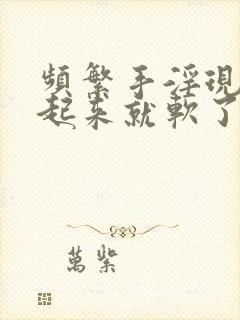 頻繁手淫現
起來就軟了
萬紫